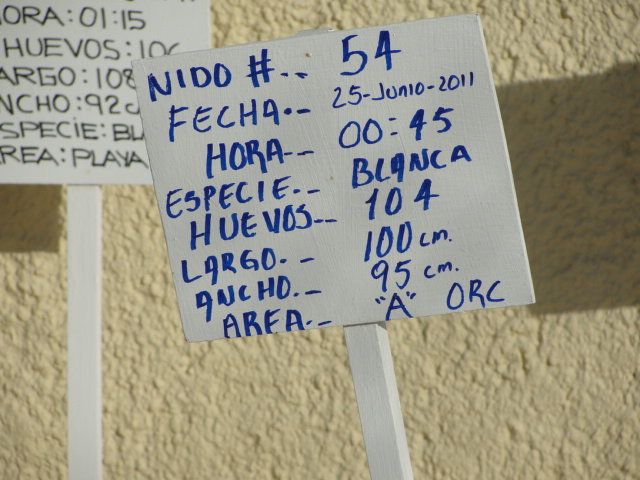 HORA:01:15
HUEVOS:106
LARGO:108
ANCHO:92
ESPECIE:
AREA:PLAYA
NIDO #.. 54
FECHA.- 25-JUNIO-2011
HORA-- 00:45
ESPECIE.-- BLANCA
HUEVOS-- 104
LARGO.-- 100 cm.
ANCHO.-- 95 cm.
AREA.-- "A" ORC